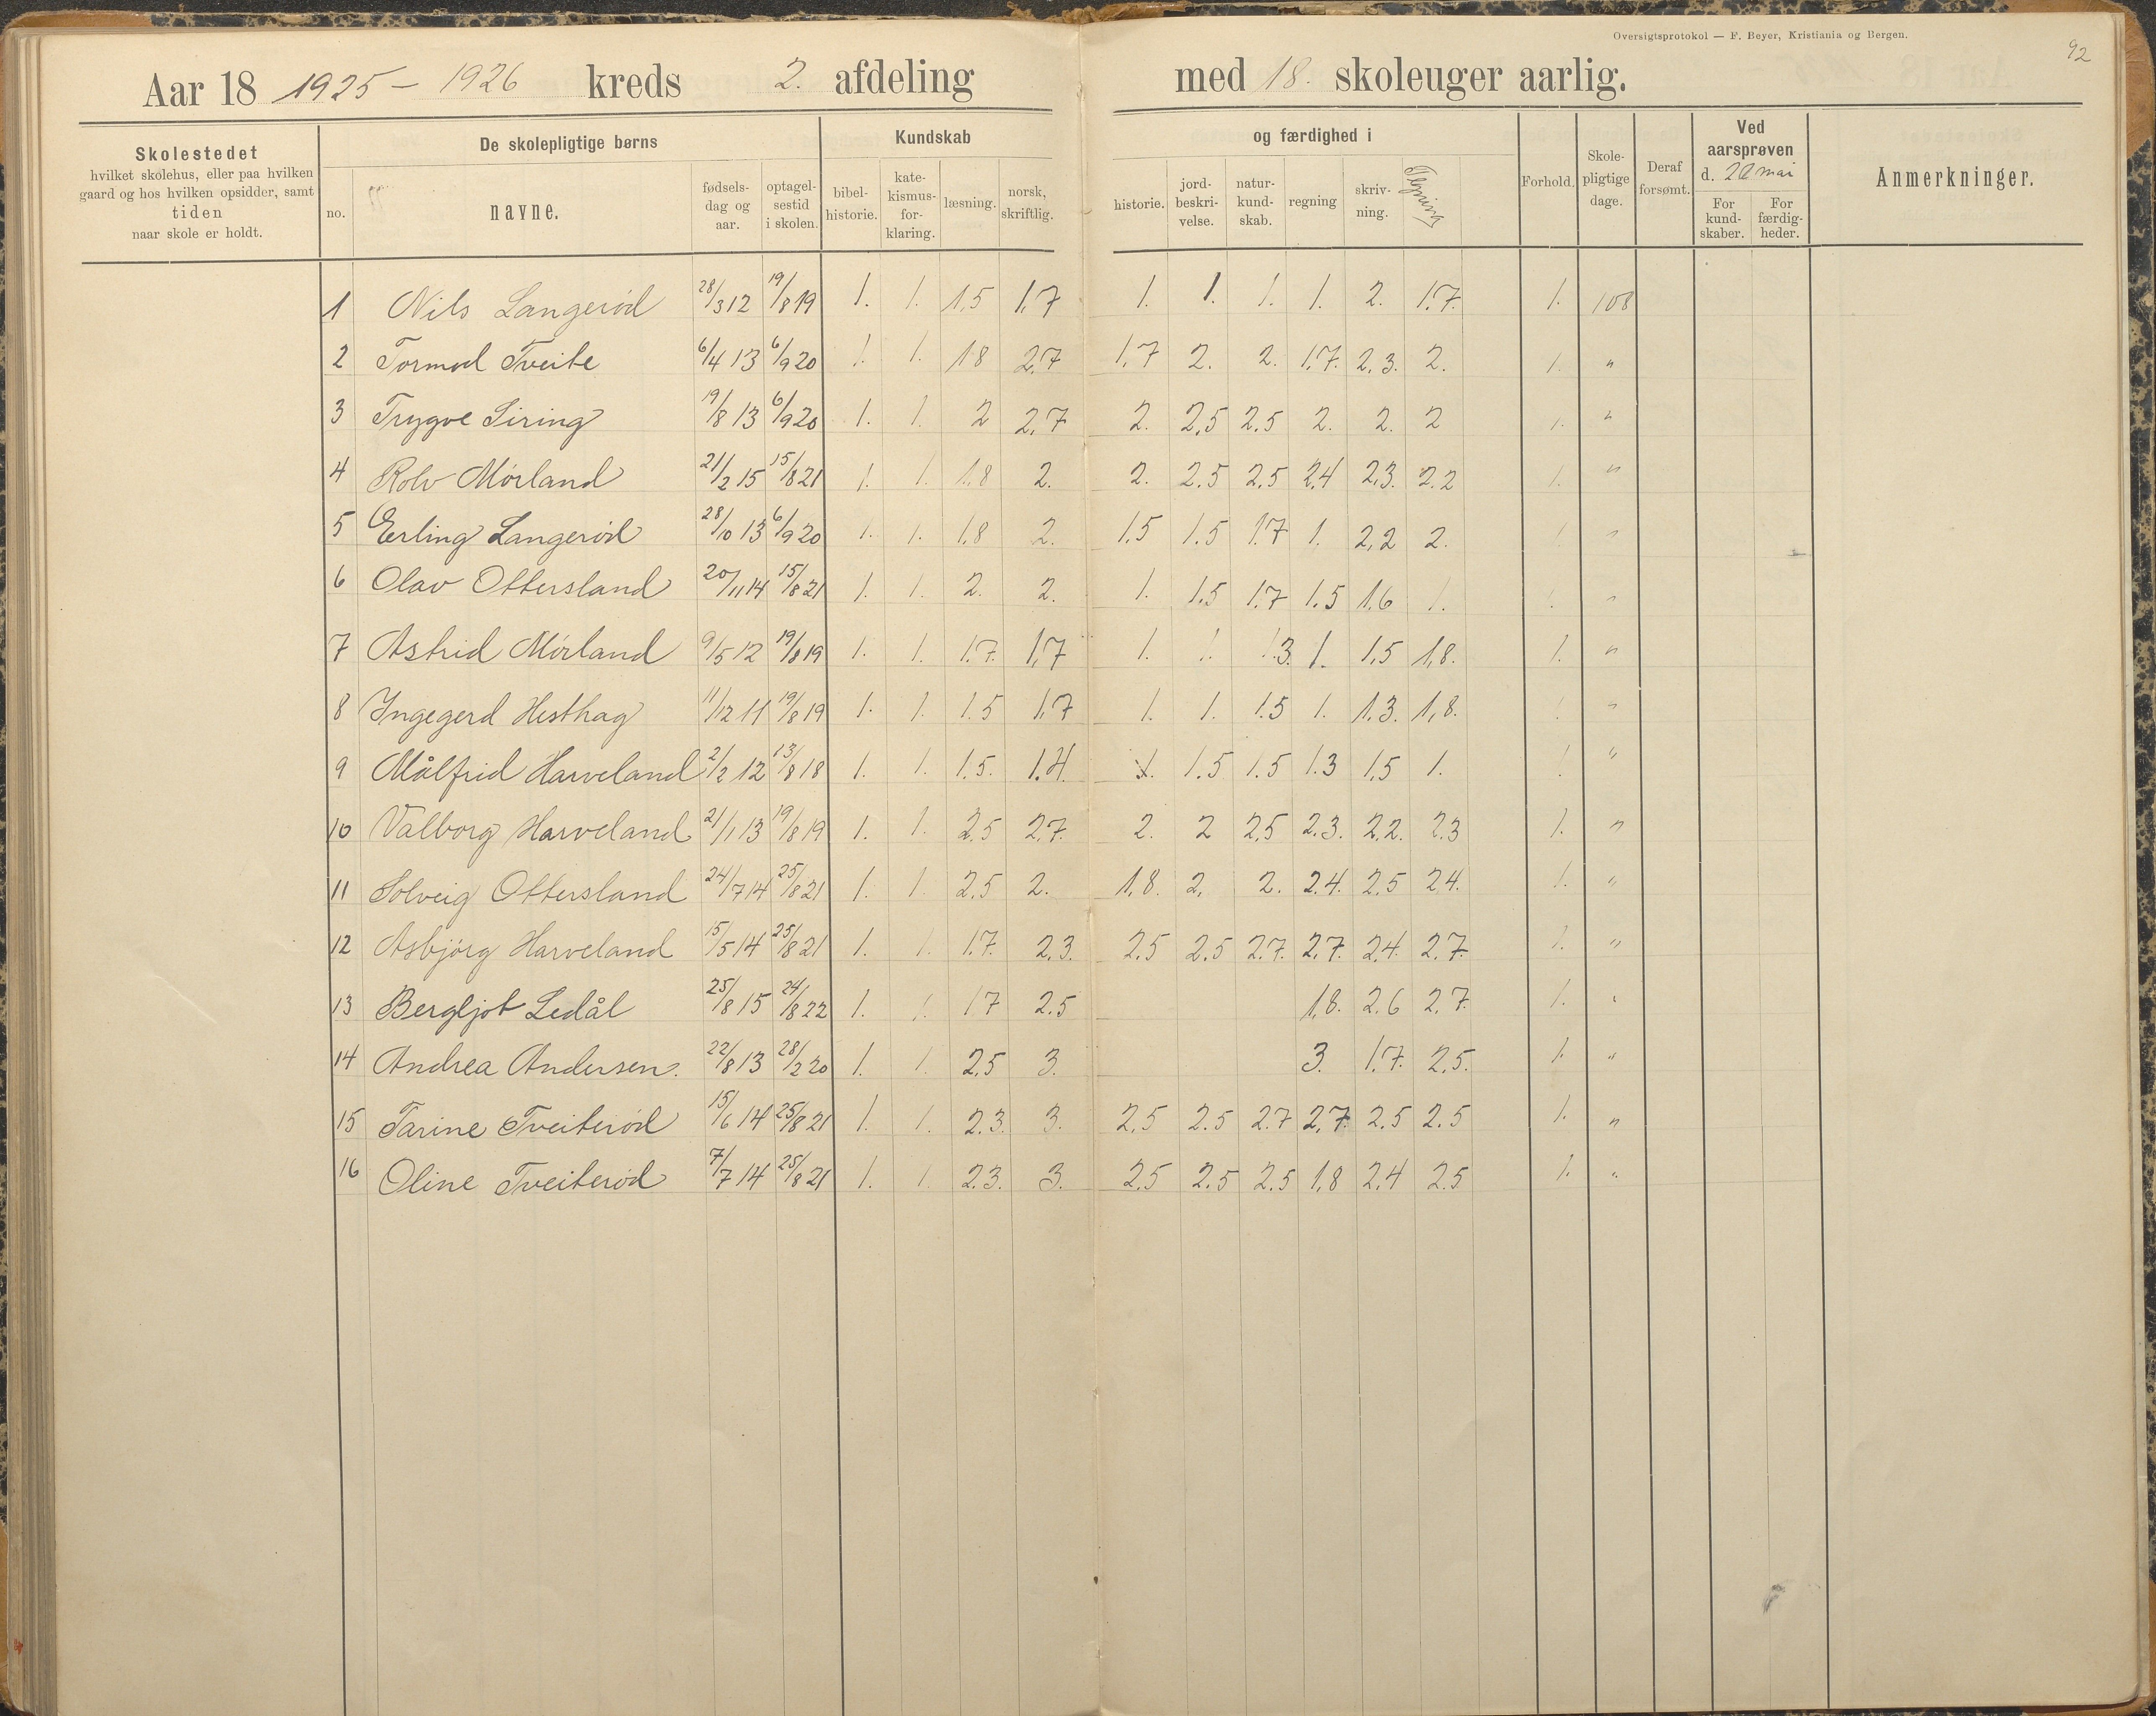 Oversigtsprotokol — F. Beyer, Kristiania og Bergen.
92
Aar 18 1925 – 1926 kreds 2. afdeling med 18. skoleuger aarlig.
Skolestedet
hvilket skolehus, eller paa hvilken
gaard og hos hvilken opsidder, samt
tiden
naar skole er holdt.
De skolepligtige børns
no.
navne.
fødsels-
dag og
aar.
optagel-
sestid
i skolen.
Kundskab
bibel-
historie.
kate-
kismus-
for-
klaring.
læsning.
norsk,
skriftlig.
og færdighed i
historie.
jord-
beskri-
velse.
natur-
kund-
skab.
regning
skriv-
ning.
Tegning
Forhold.
Skole-
pligtige
dage.
Deraf
forsømt.
Ved
aarsprøven
d. 22 mai
For
kund-
skaber.
For
færdig-
heder.
Anmerkninger.
1 Nils Langerød 28/3 12 19/8 19 1. 1. 1,5 1,7 1. 1. 1. 1. 2. 1.7. 1. 108
2 Tormod Tveite 6/4 13 6/9 20 1. 1. 18 2,7 1,7 2. 2. 1,7. 2,3. 2. 1. "
3 Trygve Siring 19/8 13 6/9 20 1. 1. 2 2,7 2. 2,5 2.5 2. 2. 2 1. "
4 Rolv Mørland 21/2 15 15/8 21 1. 1. 1,8 2. 2. 2.5 2.5 2,4 2,3. 2.2 1. "
5 Erling Langerød 28/10 13 6/9 20 1. 1. 1.8 2. 1.5 1.5 1.7 1. 2,2 2. 1. "
6 Olav Ottersland 20/11 14 15/8 21 1. 1. 2. 2. 1. 1.5 1.7 1.5 1,6 1. 1. "
7 Astrid Mørland 9/5 12 19/8 19 1. 1. 1.7. 1,7 1. 1. 1.3. 1. 1,5 1,8. 1. "
8 Ingegerd Hesthag 11/12 11 19/8 19 1. 1. 1.5 1,7 1. 1. 1.5 1. 1.3. 1,8. 1. "
9 Målfrid Harveland 2/2 12 13/8 18 1. 1. 1.5. 1.4. 1. 1.5 1.5 1.3 1,5 1. 1. "
10 Valborg Harveland 21/1 13 19/8 19 1. 1. 2,5 2,7. 2. 2 2,5 2.3. 2,2. 2.3 1. "
11 Solveig Ottersland 24/7 14 25/8 21 1. 1. 2,5 2. 1,8. 2, 2. 2.4. 2,5 2,4. 1. "
12 Asbjörg Harveland 15/5 14 25/8 21 1. 1. 1.7. 2,3. 2.5 2.5 2.7. 2,7. 2,4. 2.7. 1. "
13 Bergljot Ledål 25/8 15 24/8 22 1. 1. 1.7 2.5 1,8. 2.6 2,7. 1. "
14 Andrea Andersen. 22/8 13 28/2 20 1. 1. 2,5 3. 3. 1.7. 2,5. 1. "
15 Tarine Tveiterød 15/6 14 25/8 21 1. 1. 2.3. 3. 2,5 2.5 2.7 2,7. 2.5 2.5 1. "
16 Oline Tveiterød 7/7 14 25/8 21 1. 1. 2.3. 3. 2.5 2.5 2.5 1,8 2,4 2.5 1. "